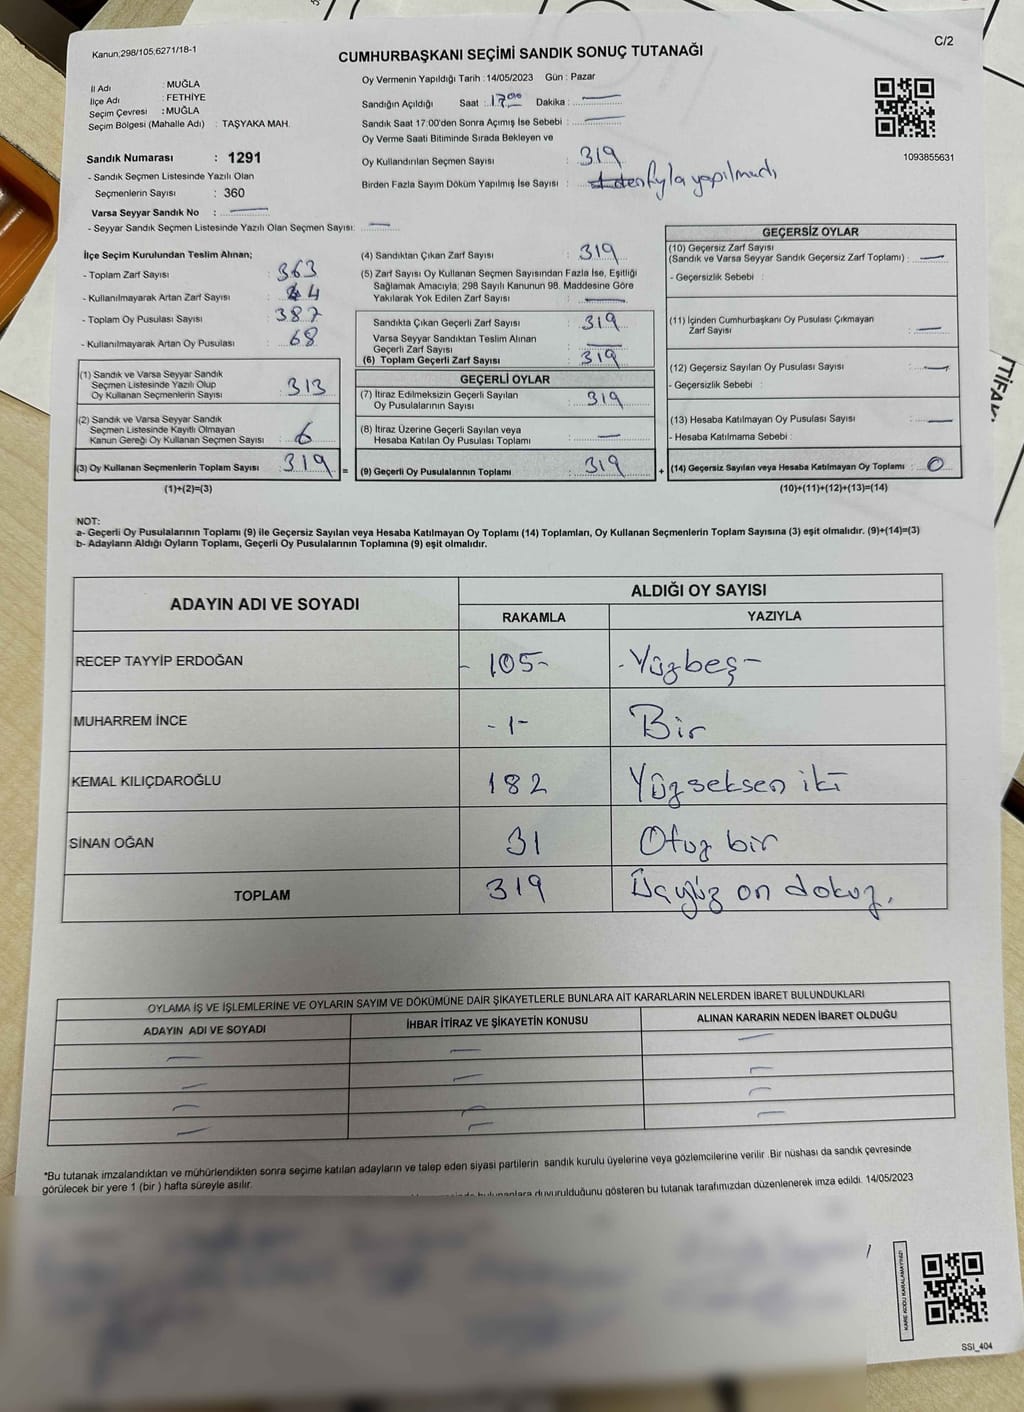 Kanun;298/105,6271/18-1
C/2
CUMHURBAŞKANI SEÇİMİ SANDIK SONUÇ TUTANAĞI
İl Adı : MUĞLA
İlçe Adı : FETHİYE
Seçim Çevresi : MUĞLA
Seçim Bölgesi (Mahalle Adı) : TAŞYAKA MAH.
Sandık Numarası : 1291
- Sandık Seçmen Listesinde Yazılı Olan
Seçmenlerin Sayısı : 360
Varsa Seyyar Sandık No :
- Seyyar Sandık Seçmen Listesinde Yazılı Olan Seçmen Sayısı:
Oy Vermenin Yapıldığı Tarih :14/05/2023 Gün : Pazar
Sandığın Açıldığı Saat : 17.00 Dakika :
Sandık Saat 17:00'den Sonra Açımış İse Sebebi :
Oy Verme Saati Bitiminde Sırada Bekleyen ve
Oy Kullandırılan Seçmen Sayısı : 319
Birden Fazla Sayım Döküm Yapılmış İse Sayısı : yapılmadı
1093855631
İlçe Seçim Kurulundan Teslim Alınan;
- Toplam Zarf Sayısı : 363
- Kullanılmayarak Artan Zarf Sayısı : 44
- Toplam Oy Pusulası Sayısı : 387
- Kullanılmayarak Artan Oy Pusulası : 68
(1) Sandık ve Varsa Seyyar Sandık
Seçmen Listesinde Yazılı Olup
Oy Kullanan Seçmenlerin Sayısı : 313
(2) Sandık ve Varsa Seyyar Sandık
Seçmen Listesinde Kayıtlı Olmayan
Kanun Gereği Oy Kullanan Seçmen Sayısı : 6
(3) Oy Kullanan Seçmenlerin Toplam Sayısı : 319 =
(1)+(2)=(3)
(4) Sandıktan Çıkan Zarf Sayısı : 319
(5) Zarf Sayısı Oy Kullanan Seçmen Sayısından Fazla İse, Eşitliği
Sağlamak Amacıyla; 298 Sayılı Kanunun 98. Maddesine Göre
Yakılarak Yok Edilen Zarf Sayısı :
Sandıkta Çıkan Geçerli Zarf Sayısı : 319
Varsa Seyyar Sandıktan Teslim Alınan
Geçerli Zarf Sayısı :
(6) Toplam Geçerli Zarf Sayısı : 319
GEÇERLİ OYLAR
(7) İtiraz Edilmeksizin Geçerli Sayılan
Oy Pusulalarının Sayısı : 319
(8) İtiraz Üzerine Geçerli Sayılan veya
Hesaba Katılan Oy Pusulası Toplamı :
(9) Geçerli Oy Pusulalarının Toplamı : 319 +
GEÇERSİZ OYLAR
(10) Geçersiz Zarf Sayısı
(Sandık ve Varsa Seyyar Sandık Geçersiz Zarf Toplamı) :
- Geçersizlik Sebebi :
(11) İçinden Cumhurbaşkanı Oy Pusulası Çıkmayan
Zarf Sayısı :
(12) Geçersiz Sayılan Oy Pusulası Sayısı :
- Geçersizlik Sebebi :
(13) Hesaba Katılmayan Oy Pusulası Sayısı :
- Hesaba Katılmama Sebebi :
(14) Geçersiz Sayılan veya Hesaba Katılmayan Oy Toplamı : 0
(10)+(11)+(12)+(13)=(14)
NOT:
a- Geçerli Oy Pusulalarının Toplamı (9) ile Geçersiz Sayılan veya Hesaba Katılmayan Oy Toplamı (14) Toplamları, Oy Kullanan Seçmenlerin Toplam Sayısına (3) eşit olmalıdır. (9)+(14)=(3)
b- Adayların Aldığı Oyların Toplamı, Geçerli Oy Pusulalarının Toplamına (9) eşit olmalıdır.
ADAYIN ADI VE SOYADI
ALDIĞI OY SAYISI
RAKAMLA YAZIYLA
RECEP TAYYİP ERDOĞAN - 105 - - Yüzbeş -
MUHARREM İNCE - 1 - Bir
KEMAL KILIÇDAROĞLU 182 Yüzseksen iki
SİNAN OĞAN 31 Otuz bir
TOPLAM 319 Üçyüz on dokuz.
OYLAMA İŞ VE İŞLEMLERİNE VE OYLARIN SAYIM VE DÖKÜMÜNE DAİR ŞİKAYETLERLE BUNLARA AİT KARARLARIN NELERDEN İBARET BULUNDUKLARI
ADAYIN ADI VE SOYADI İHBAR İTİRAZ VE ŞİKAYETİN KONUSU ALINAN KARARIN NEDEN İBARET OLDUĞU
*Bu tutanak imzalandıktan ve mühürlendikten sonra seçime katılan adayların ve talep eden siyasi partilerin sandık kurulu üyelerine veya gözlemcilerine verilir .Bir nüshası da sandık çevresinde
görülecek bir yere 1 (bir ) hafta süreyle asılır.
bulunanlara duyurulduğunu gösteren bu tutanak tarafımızdan düzenlenerek imza edildi. 14/05/2023
KARE KODU KARALAMAYINIZ!
SSI_404
İTİFAK